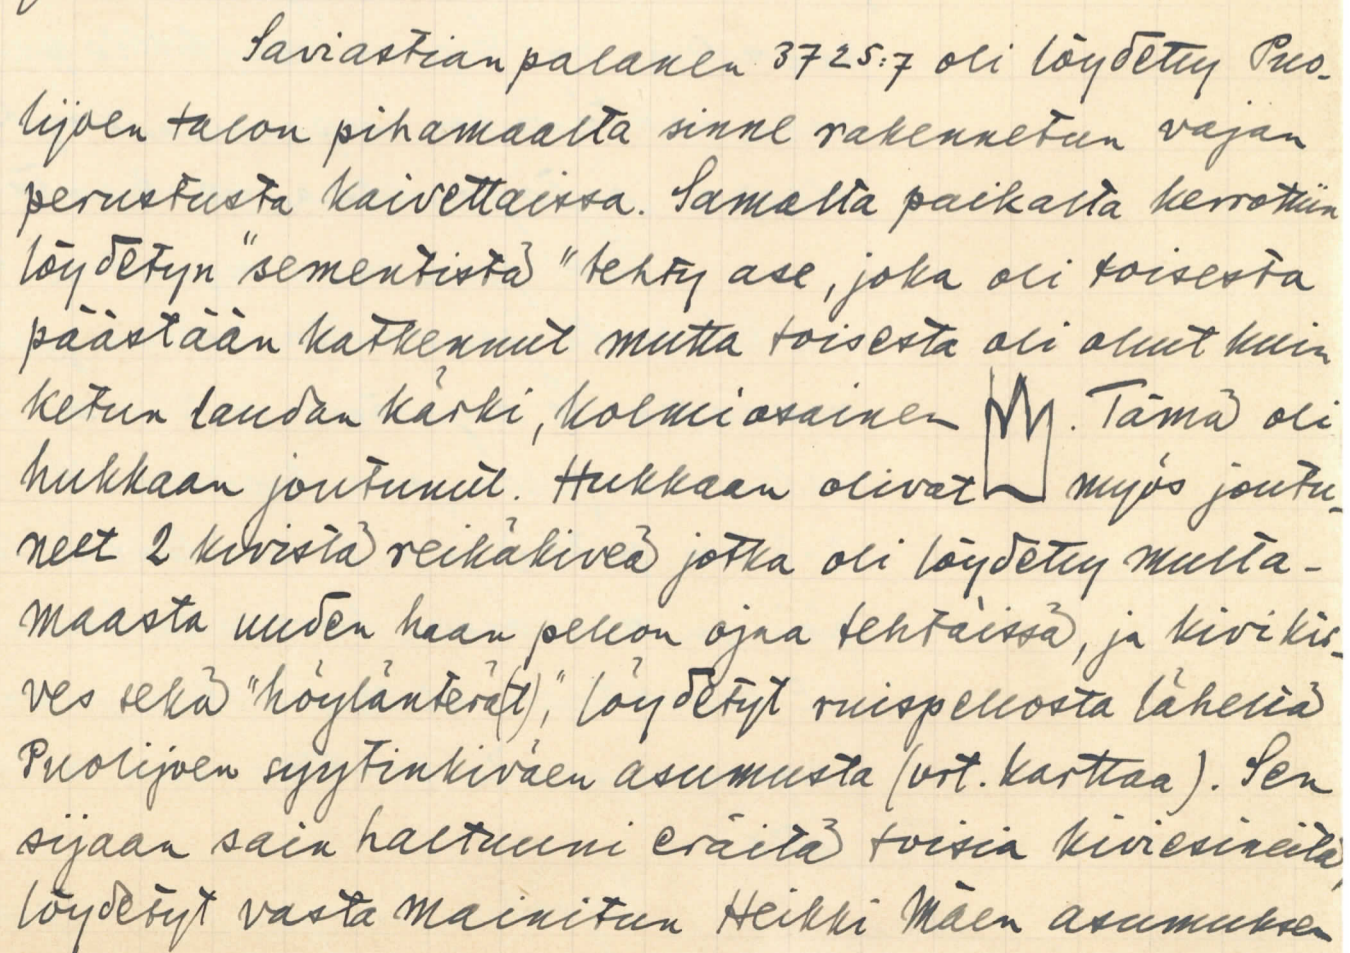 Saviastian palanen 3725:7 oli löydetty Puo-
lijoen talon pihamaalta sinne rakennetun vajan
perustusta kaivettaissa. Samalta paikalta kerrottiin
löydetyn "sementistä" tehty ase, joka oli toisesta
päästään katkennut mutta toisesta oli ollut kuin
ketun laudan kärki, kolmiosainen . Tämä oli
hukkaan joutunut. Hukkaan olivat myös joutu-
neet 2 kivistä reikäkiveä jotka oli löydetty multa-
maasta uuden haan pellon ojaa tehtäissä, ja kivikir-
ves sekä "höylänterä(t)", löydetyt ruispellosta läheltä
Puolijoen syytinkiväen asumusta (vrt. karttaa). Sen
sijaan sain haltuuni eräitä toisia kiviesineitä,
löydetyt vasta mainitun Heikki Mäen asumuksen